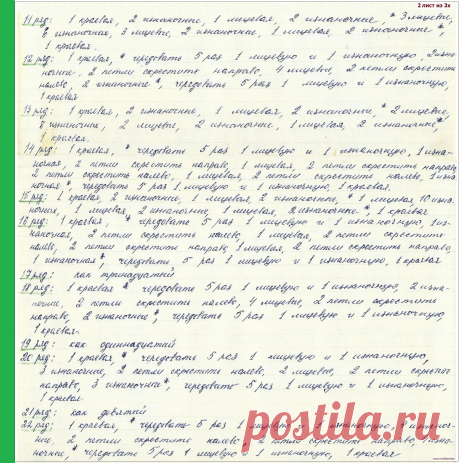 2 лист из 3х
11 ряд: 1 краевая, 2 изнаночные, 1 лицевая, 2 изнаночные, * 3 лицевые,
6 изнаночных, 3 лицевые, 2 изнаночные, 1 лицевая, 2 изнаночные *,
1 краевая.
12 ряд: 1 краевая, * чередовать 5 раз 1 лицевую и 1 изнаночную, 2 изна-
ночные, 2 петли скрестить направо, 4 лицевые, 2 петли скрестить
налево, 2 изнаночные *, чередовать 5 раз 1 лицевую и 1 изнаночную,
1 краевая
13 ряд: 1 краевая, 2 изнаночные, 1 лицевая, 2 изнаночные, * 2 лицевые,
8 изнаночные, 2 лицевые, 2 изнаночные, 1 лицевая, 2 изнаночные *,
1 краевая.
14 ряд: 1 краевая, * чередовать 5 раз 1 лицевую и 1 изнаночную, 1 изна-
ночная, 2 петли скрестить направо, 1 лицевая, 2 петли скрестить направо,
2 петли скрестить налево, 1 лицевая, 2 петли скрестить налево, 1 изна-
ночная *, чередовать 5 раз 1 лицевую и 1 изнаночную, 1 краевая.
15 ряд: 1 краевая, 2 изнаночные, 1 лицевая, 2 изнаночные, * 1 лицевая, 10 изна-
ночных, 1 лицевая, 2 изнаночные, 1 лицевая, 2 изнаночные *, 1 краевая
16 ряд: 1 краевая, * чередовать 5 раз 1 лицевую и 1 изнаночную, 1 из-
наночная, 2 петли скрестить налево, 1 лицевая, 2 петли скрестить
налево, 2 петли скрестить направо, 1 лицевая, 2 петли скрестить направо,
1 изнаночная *, чередовать 5 раз 1 лицевую и 1 изнаночную, 1 краевая
17 ряд: как тринадцатый
18 ряд: 1 краевая, * чередовать 5 раз 1 лицевую и 1 изнаночную, 2 изна-
ночные, 2 петли скрестить налево, 4 лицевые, 2 петли скрестить
направо, 2 изнаночные *, чередовать 5 раз 1 лицевую и 1 изнаночную,
1 краевая.
19 ряд: как одиннадцатый
20 ряд: 1 краевая, * чередовать 5 раз 1 лицевую и 1 изнаночную,
3 изнаночные, 2 петли скрестить налево, 2 лицевые, 2 петли скрестить
направо, 3 изнаночные *, чередовать 5 раз 1 лицевую и 1 изнаночную,
1 краевая
21 ряд: как девятый
22 ряд: 1 краевая, * чередовать 5 раз 1 лицевую и 1 изнаночную, 4 изнаноч-
ные, 2 петли скрестить налево, 2 петли скрестить направо,
ночные *, чередовать 5 раз 1 лицевую и 1 изнаночную, 1 краевая
postila.ru